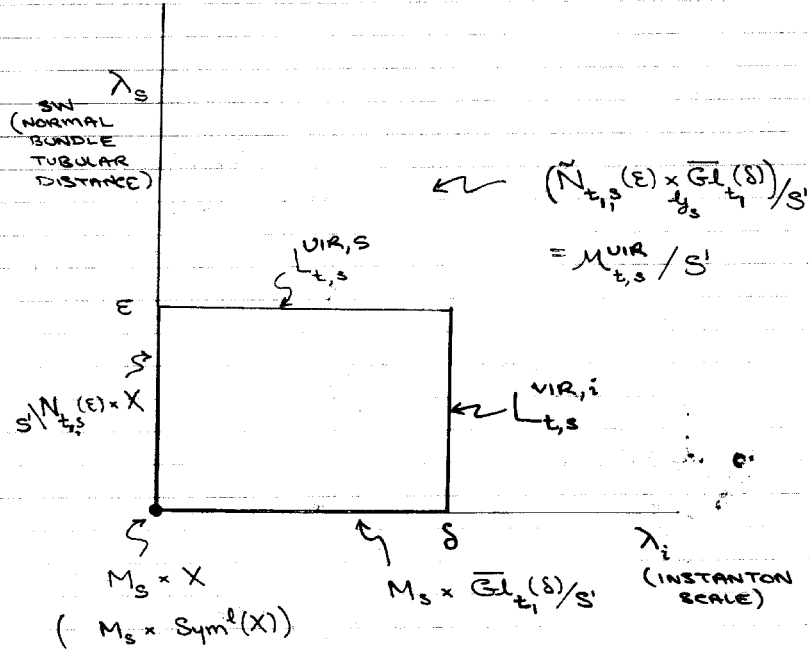 λ_s
SW
(NORMAL
BUNDLE
TUBULAR
DISTANCE)
(Ñ_{t_1,s}(ε) ×_{𝒢_s} \overline{Gl}_{t_1}(δ))/S¹
= M^{VIR}_{t,s} / S¹
L^{VIR,S}_{t,s}
ε
S¹\N_{t_1,s}(ε) × X
L^{VIR,i}_{t,s}
δ
λ_i
(INSTANTON
SCALE)
M_s × X
( M_s × Sym^ℓ(X))
M_s × \overline{Gl}_{t_1}(δ)/S¹